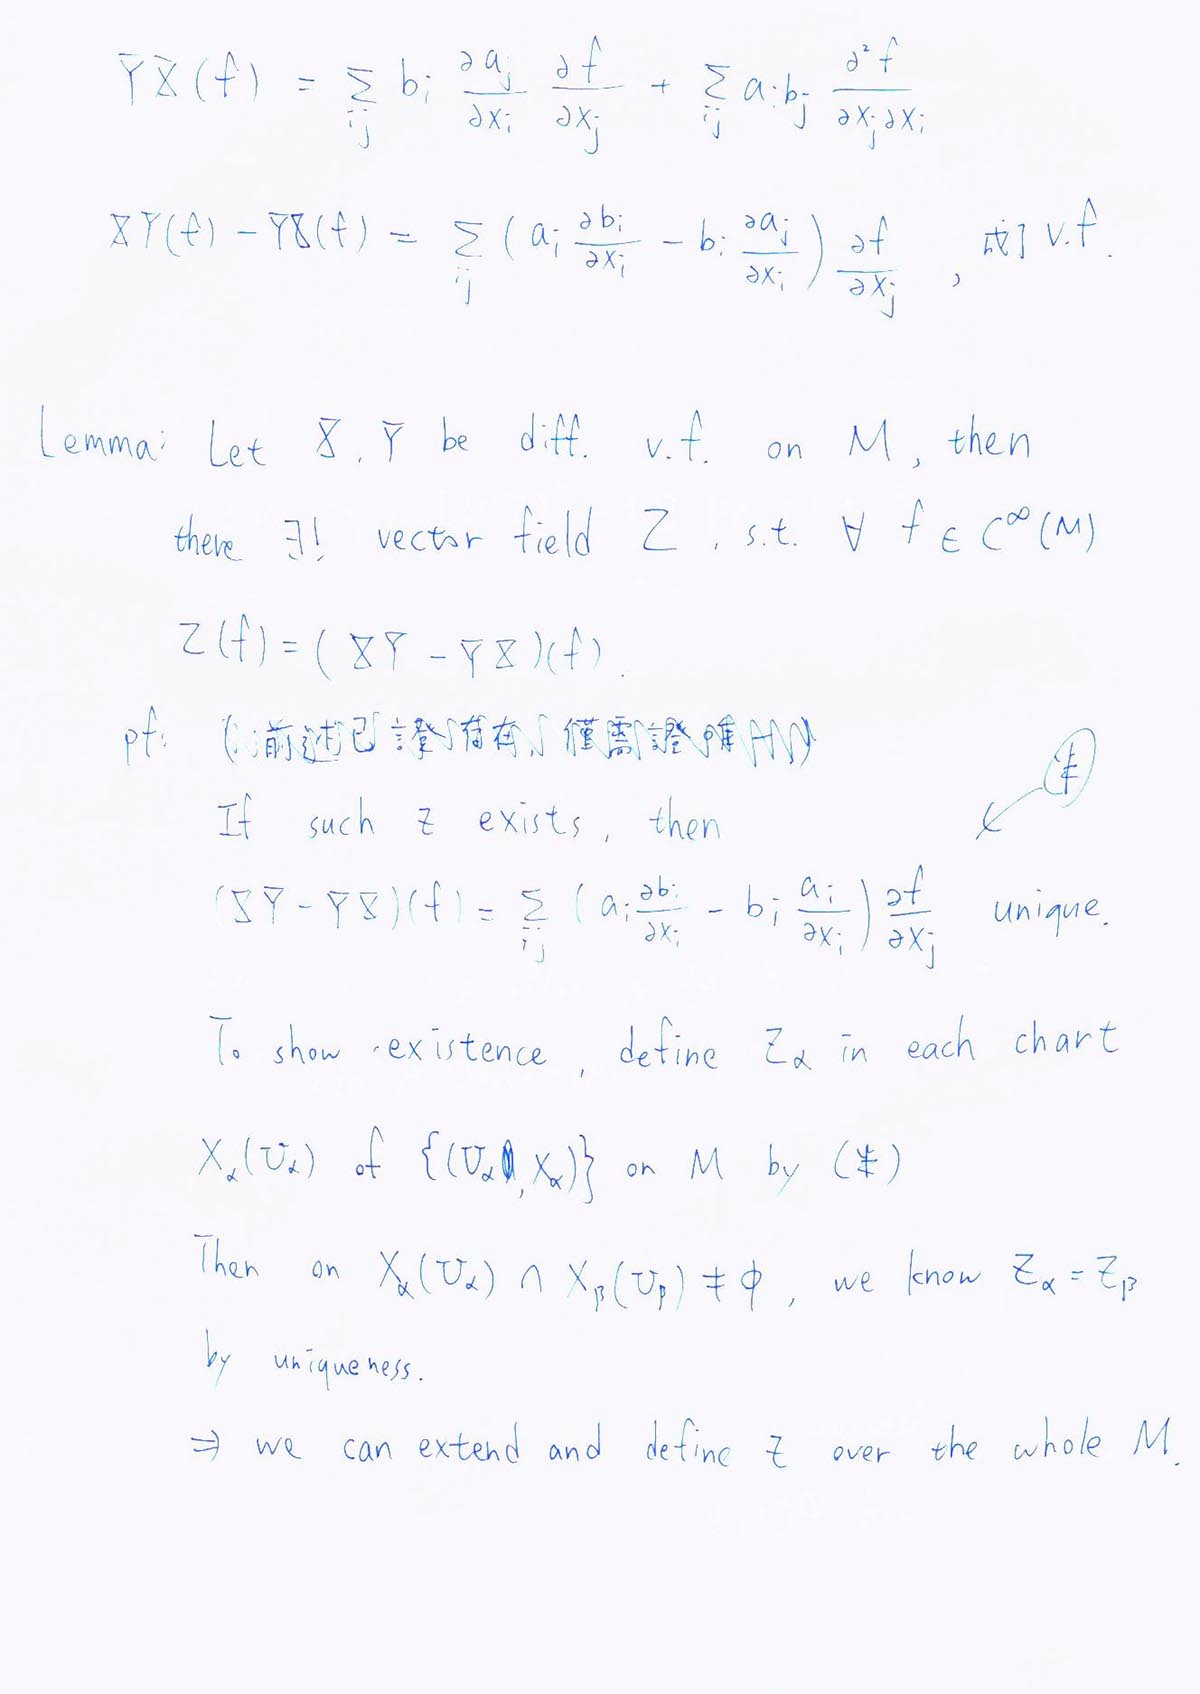 ȲX̄(f) = Σ_{ij} b_i ∂a_j/∂x_i ∂f/∂x_j + Σ_{ij} a_i b_j ∂²f/∂x_j∂x_i
XY(f) - YX(f) = Σ_{ij} (a_i ∂b_i/∂x_i - b_i ∂a_j/∂x_i) ∂f/∂x_j , 成了 v.f.
Lemma: Let X, Y be diff. v.f. on M, then
there ∃! vector field Z, s.t. ∀ f ∈ C^∞(M)
Z(f) = (XY - YX)(f).
pf: (∵前述已證存在, 僅需證唯一)
If such Z exists, then
(XY - YX)(f) = Σ_{ij} (a_i ∂b_i/∂x_i - b_i a_i/∂x_i) ∂f/∂x_j unique.
To show existence, define Z_α in each chart
X_α(U_α) of {(U_α, X_α)} on M by (*)
Then on X_α(U_α) ∩ X_β(U_β) ≠ ϕ, we know Z_α = Z_β
by uniqueness.
⇒ we can extend and define Z over the whole M.